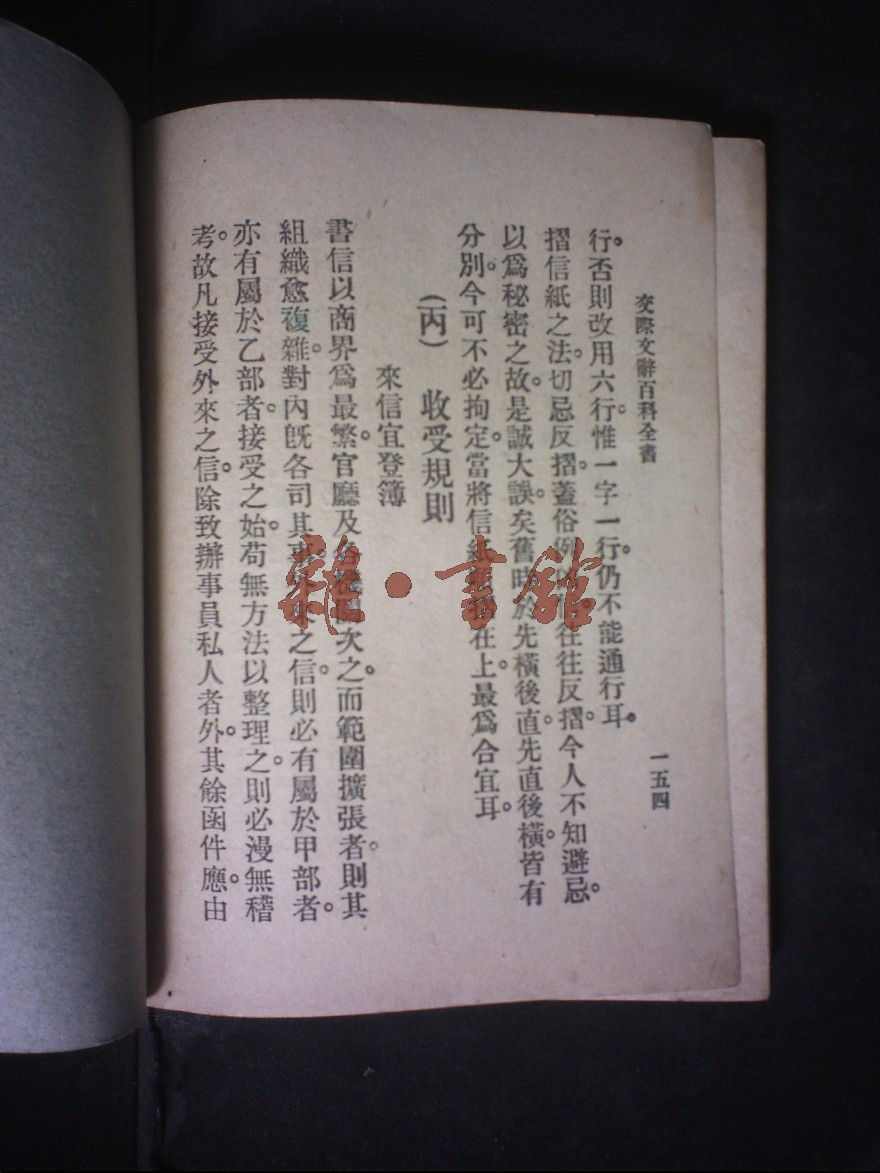 交際文辭百科全書
一五四
行。否則改用六行。惟一字一行。仍不能通行耳。
摺信紙之法。切忌反摺。蓋俗例往往反摺。今人不知避忌。
以爲秘密之故。是誠大誤矣。舊時於先橫後直。先直後橫。皆有
分別。今可不必拘定。當將信紙在上。最爲合宜耳。
(丙) 收受規則
來信宜登簿
書信以商界爲最繁。官廳及各機關次之。而範圍擴張者。則其
組織愈複雜。對內既各司其之信。則必有屬於甲部者。
亦有屬於乙部者。接受之始。苟無方法以整理之。則必漫無稽
考。故凡接受外來之信。除致辦事員私人者外。其餘函件。應由
雜·書館